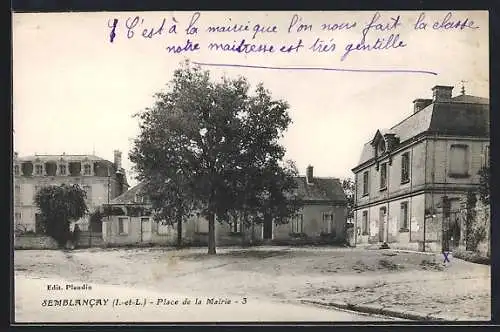 C'est à la mairie que l'on nous fait la classe
notre maitresse est très gentille
Edit. Plaudin
SEMBLANÇAY (I.-et-L.) — Place de la Mairie - 3
X